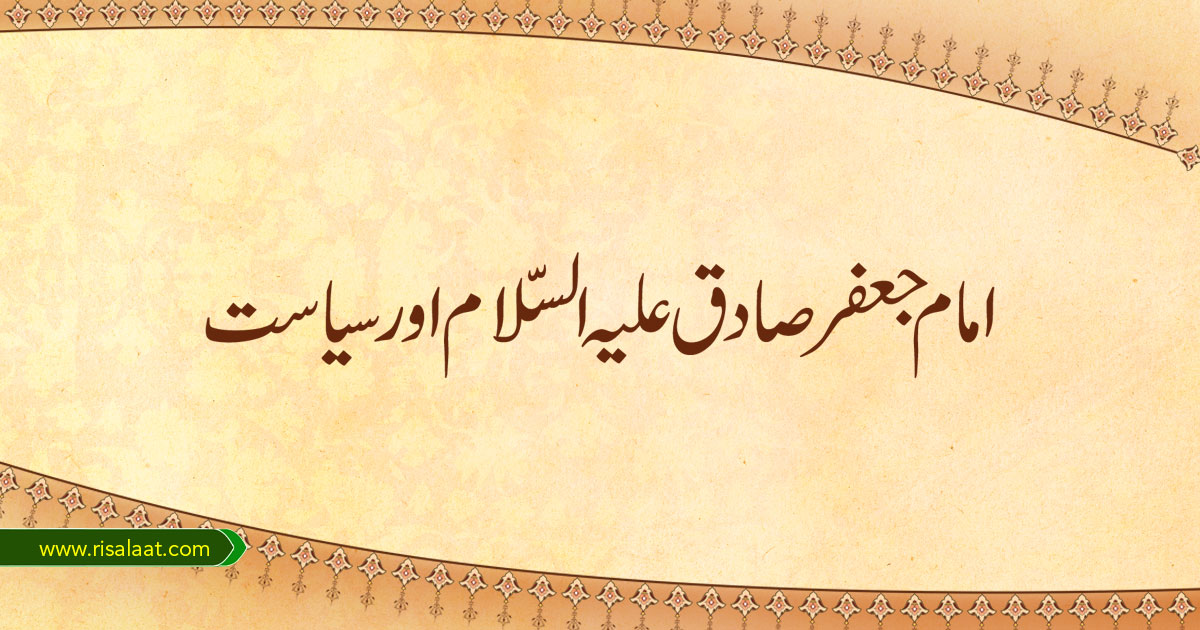 امام جعفر صادق علیہ السّلام اور سیاست
www.risalaat.com